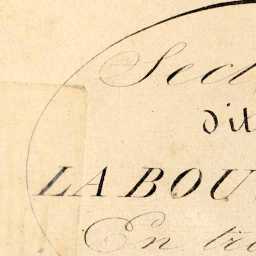 Sect
dit
LA BOU
En tro